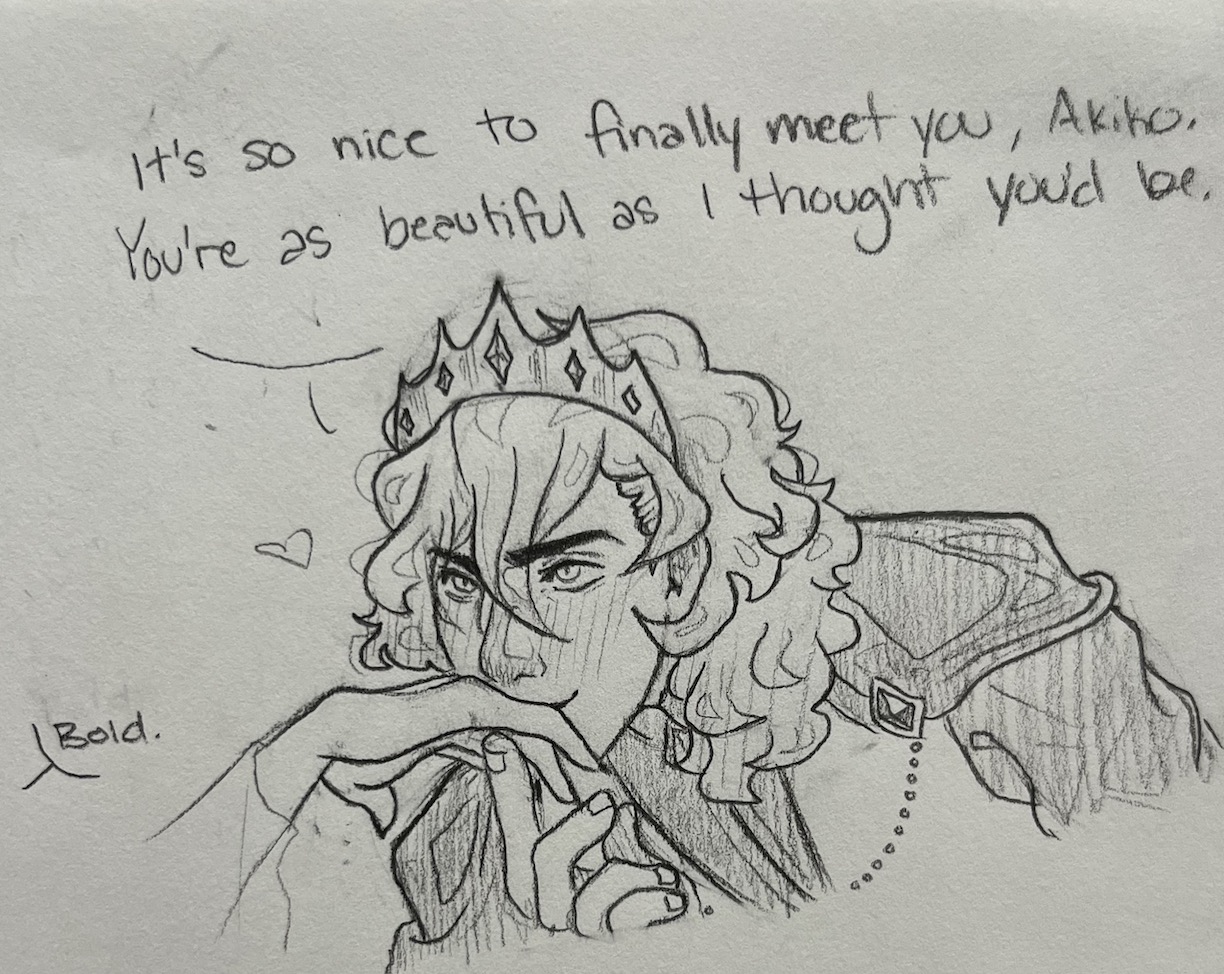 It's so nice to finally meet you, Akiho.
You're as beautiful as I thought you'd be.
Bold.